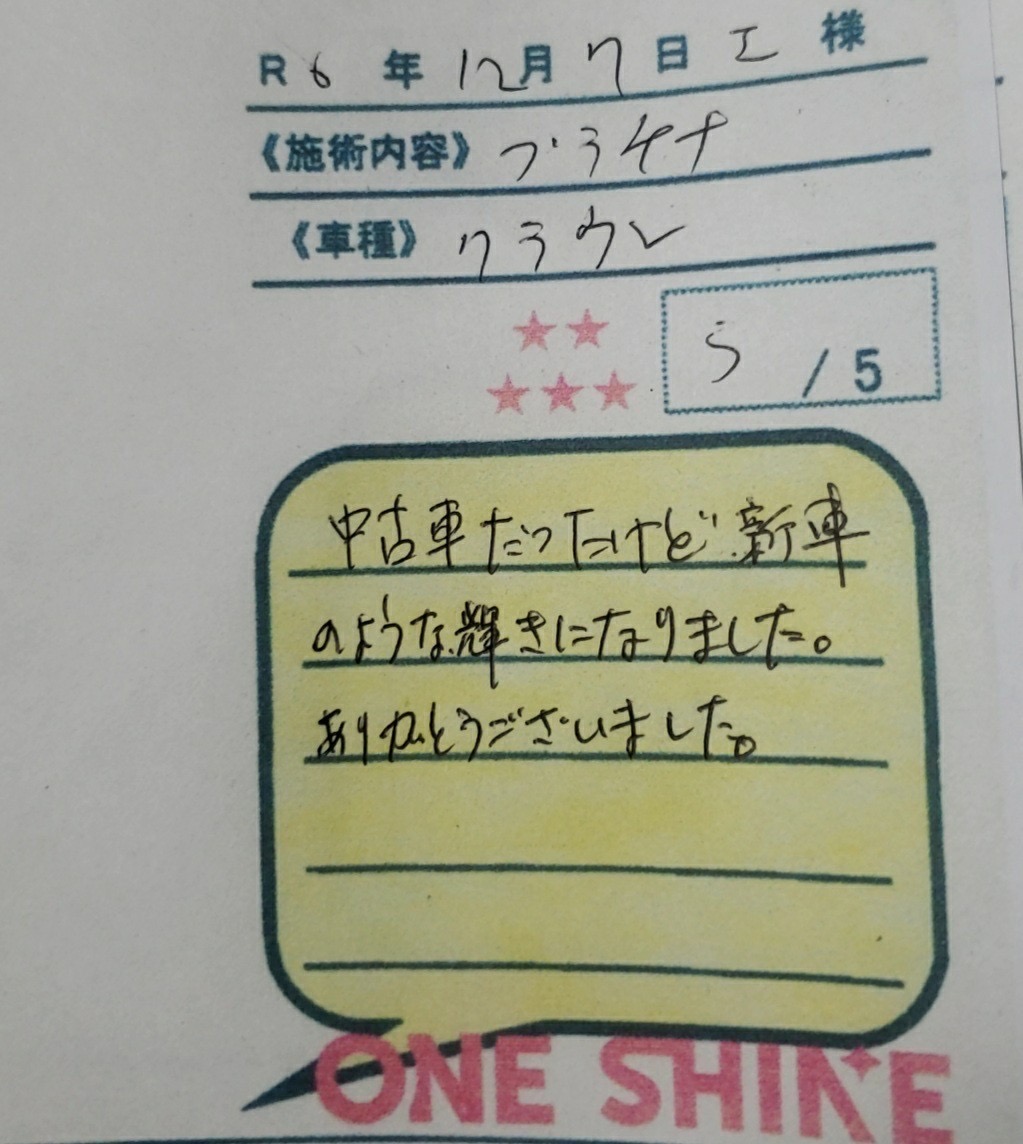 R6年12月7日 エ 様
《施術内容》 プラチナ
《車種》 クラウン
5/5
中古車だったけど新車
のような輝きになりました。
ありがとうございました。
ONE SHINE